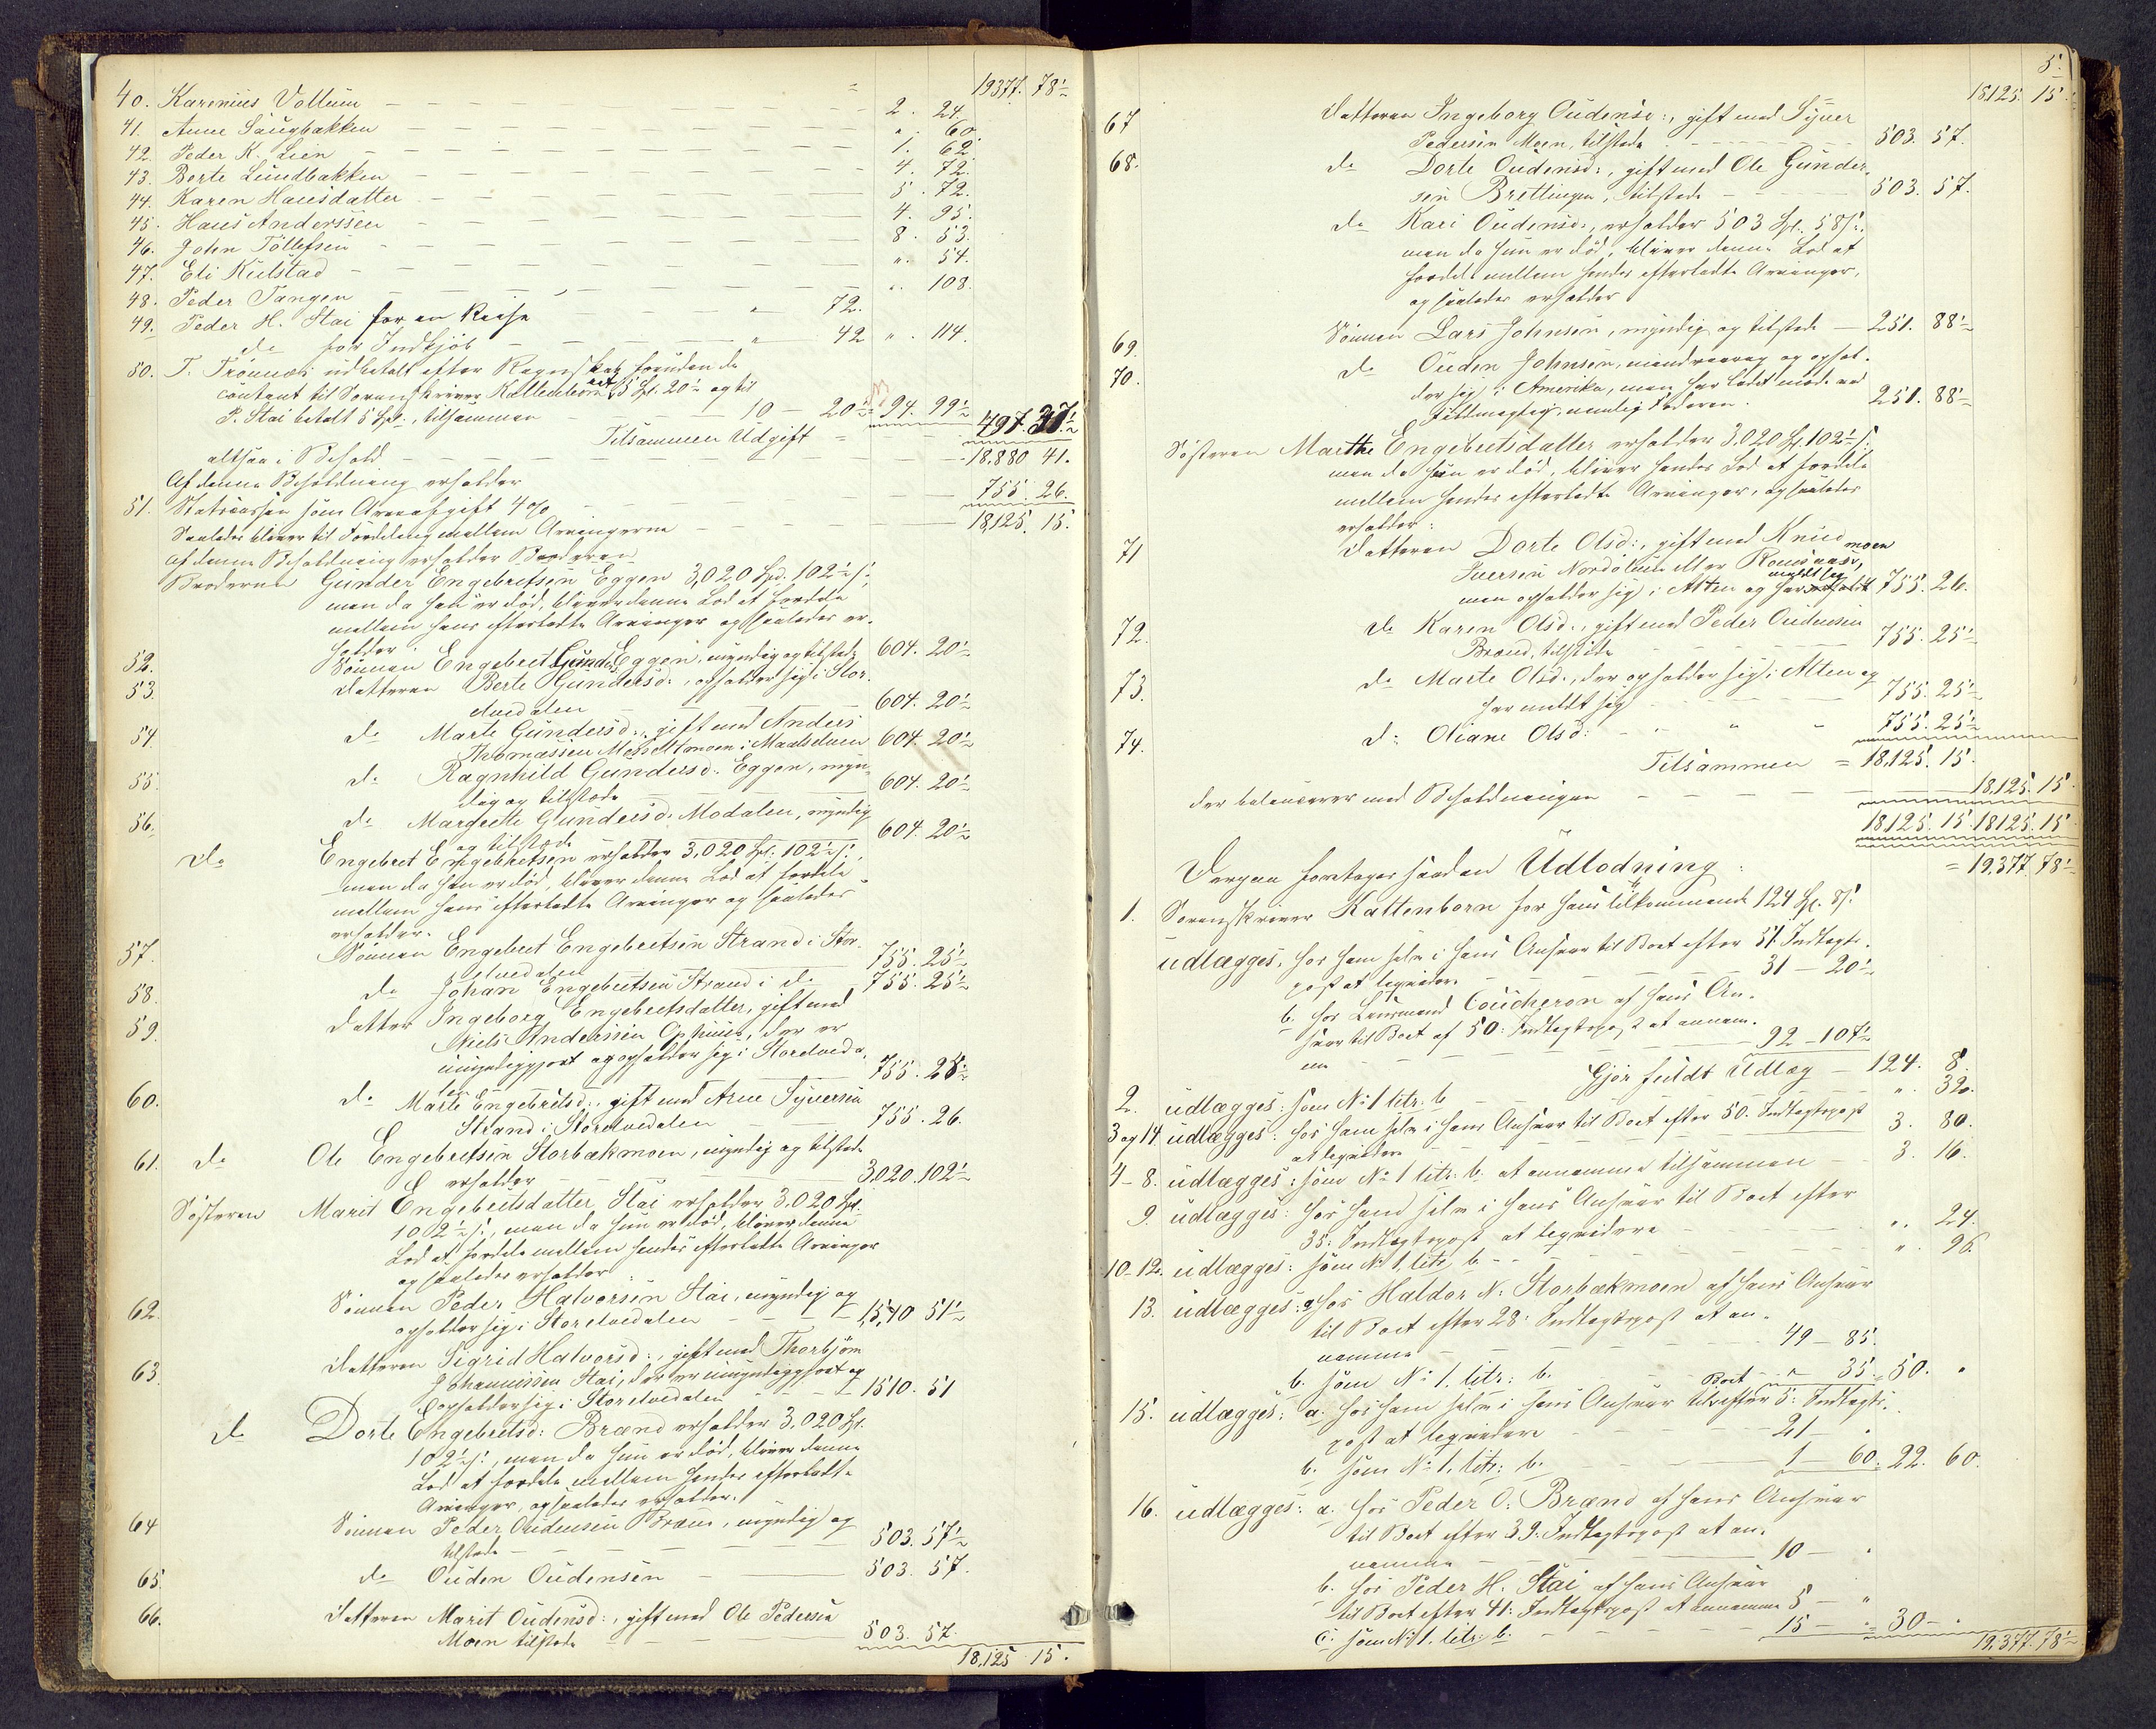 19377. 78½
40. Karenius Vollum — 2. 24.
41. Anne Saugbakken — ". 60.
42. Peder K. Lien — 1. 62.
43. Berte Lundbakken — 4. 72.
44. Karen Hansdatter — 5. 72.
45. Hans Anderssen — 4. 95.
46. John Tollefsen — 8. 53.
47. Eli Kulstad — ". 54.
48. Peder Tangen — ". 108.
49. Peder H. Stai for en Reise — " 72.
do for Indkjøb — " 42 ". 114.
50. T. Trønnæs udbetalt efter Regnskab foruden de
contant til Sorenskriver Kattenborn 5 Spd. 20½ og til
P. Stai betalt 5 Spd., tilsammen 10 — 20½ = 94. 99½
Tilsammen Udgift = 497. 37½
altsaa i Behold — 18,880 41.
Af denne Beholdning erholder
51. Statscassen som Arveafgift 4 % — 755. 26.
Saaledes bliver til Fordeling mellem Arvingerne — 18,125. 15.
af denne Beholdning erholder Broderen
Broderen Gunder Engebretsen Eggen 3,020 Spd. 102½ s.,
men da han er død, bliver denne Lod at fordele
mellem hans efterladte Arvinger og saaledes er-
holder:
52. Sønnen Engebret Gunders. Eggen, myndig og tilstede 604. 20½
53. Datteren Berte Gundersd., opholder sig i Stor-
elvedalen — 604. 20½
54. do Marte Gundersd., gift med Anders
Thomassen Moen i Maalselven 604. 20½
55. do Ragnhild Gundersd. Eggen, myn-
dig og tilstede — 604. 20½
56. do Margrethe Gundersd. Modalen, myndig
og tilstede 604. 20½
do Engebret Engebretsen erholder 3,020 Spd. 102½ s.,
men da han er død, bliver denne Lod at fordele
mellem hans efterladte Arvinger og saaledes
erholder.
57. Sønnen Engebret Engebretsen Strand i Stor-
elvedalen — 755. 25½
58. do Johan Engebretsen Strand i do 755. 25½
59. Datter Ingeborg Engebretsdatter, gift med
Niels Anderssen Ophuus, der er
umyndiggjort og opholder sig i Storelveda-
len 755. 25½
60. do Marte Engebretsd., gift med Arne Syversen
Strand i Storelvedalen — 755. 26.
61. do Ole Engebretsen Storbækmoen, myndig og tilstede
erholder — 3,020. 102½
Søsteren Marit Engebretsdatter Stai erholder 3,020 Spd.
102½ s., men da hun er død, bliver denne
Lod at fordele mellem hendes efterladte Arvinger
og saaledes erholder:
62. Sønnen Peder Halvorsen Stai, myndig og
opholder sig i Storelvedalen — 1,510 51½
63. Datteren Sigrid Halvorsd., gift med Thorbjørn
Johannissen Stai, der er umyndiggjort og
opholder sig i Storelvedalen — 1510. 51
do Dorte Engebretsd. Brænd erholder 3,020 Spd.
102½ s., men da hun er død, bliver denne
Lod at fordele mellem hendes efterladte
Arvinger, og saaledes erholder.
64 Sønnen Peder Oudensen Brænd, myndig og
tilstede — 503. 57½
65. do Ouden Oudensen — 503. 57.
66. Datteren Marit Oudensd., gift med Ole Pedersen
Moen tilstede — 503. 57.
18,125 15.
5.
18,125. 15.
67 Datteren Ingeborg Oudensd., gift med Syver
Pedersen Moen, tilstede — 503. 57.
68. do Dorte Oudensd., gift med Ole Gunder-
sen Brettingen, tilstede — 503. 57.
do Kari Oudensd., erholder 503 Spd. 58 s.,
men da hun er død, bliver denne Lod at
fordele mellem hendes efterladte Arvinger,
og saaledes erholder
69. Sønnen Lars Johnsen, myndig og tilstede — 251. 88½
70. do Ouden Johnsen, mindreaarig og ophol-
der sig i Amerika, men har ladet møde ved
Fuldmægtig, nemlig Faderen. 251. 88½
Søsteren Marthe Engebretsdatter erholder 3,020 Spd. 102½ s.
men da hun er død, bliver hendes Lod at fordele
mellem hendes efterladte Arvinger, og saaledes
erholder:
71 Datteren Dorte Olsd., gift med Knud
Iversen Nordølum eller Romsaas moen,
men opholder sig i Alten og har meldt sig 755. 26.
72. do Karen Olsd., gift med Peder Oudensen
Brænd, tilstede 755. 25½
73. do Marte Olsd., der opholder sig i Alten og
har meldt sig — 755. 25½
74. do Oliane Olsd. — " " 755. 25½
Tilsammen = 18,125. 15.
der balancerer med Beholdningen — 18,125. 15.
18,125. 15. 18125. 15
Derpaa foretages saadan Udlodning: = 19,377. 78½
1. Sorenskriver Kattenborn for hans tilkommende 124 Spd. 8 s.
udlægges, hos ham selv i hans Ansvar til Boet efter 51 Indtægts-
post at liqvidere — 31 — 20½
b. hos Lensmand Coucheron af hans An-
svar til Boet af 50. Indtægtspost at annam-
me — 92 — 107½
Gjør fuldt Udlæg — 124. 8.
2. udlægges: som No 1 litr. b — ". 32.
3 og 14 udlægges: hos ham selv i hans Ansvar til Boet efter 50. Indtægtspost
at liqvidere — 3. 80.
4–8. udlægges: som No 1 litr. b. at annamme tilsammen — 3. 16.
9. udlægges: hos ham selv i hans Ansvar til Boet efter
35. Indtægtspost at liqvidere — ". 24.
10–12. udlægges: som No 1, litr. b — ". 96.
13. udlægges: a. hos Haldor N. Storbækmoen af hans Ansvar
til Boet efter 28. Indtægtspost at an-
namme — 49 — 85.
b. som No 1. litr. b. — " 35. 50. "
15. udlægges: a. hos ham selv i hans Ansvar til Boet efter 5. Indtægts-
post at liqvidere — 21 — "
b. som No 1. litr. b. — 1 — 60. 22. 60.
16. udlægges: a. hos Peder O. Brænd af hans Ansvar
til Boet efter 39. Indtægtspost at an-
namme — 10 — "
b. hos Peder H. Stai af hans Ansvar
til Boet efter 41. Indtægtspost at annamme 5 — "
c. som No 1. litr. b. — 15 — " = 30 — "
19,377. 78½